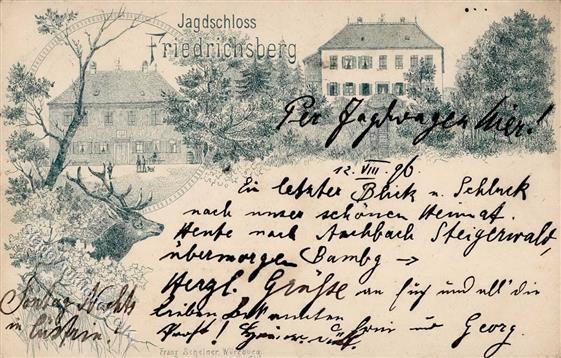 Jagdschloss
Friedrichsberg
Per Jagdwagen hier!
12. VIII. 96.
Ein letzter Blick u. Schluck
nach unser schönen Heimat.
Heute nach Steigerwald,
übermorgen Bambg →
Herzl. Grüße an Euch und all' die
lieben Bekannten
Prost! und Georg.
Sonntag Nachts
in
Franz Scheiner, Würzburg.